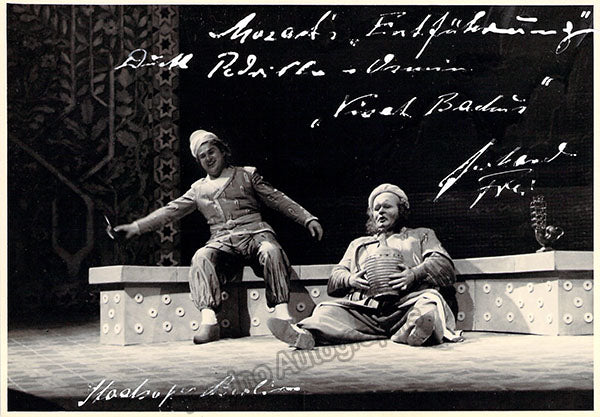 Mozart's „Entführung"
Duett Pedrillo - Osmin
„Vivat Bachus"
Gerhard
Frei
Staatsoper Berlin